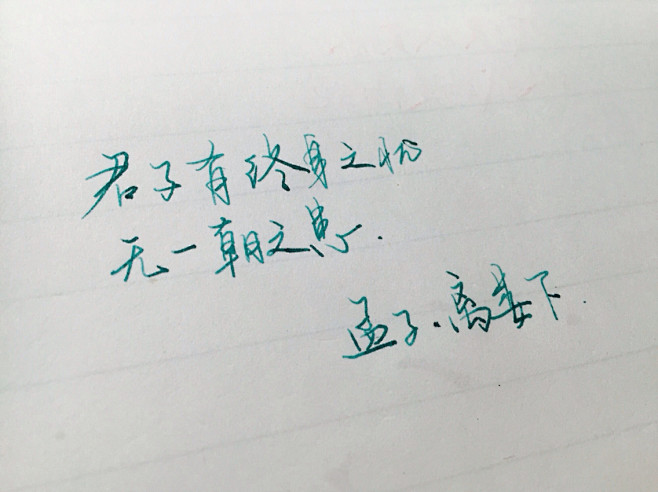 君子有终身之忧
无一朝之患.
孟子.离娄下.